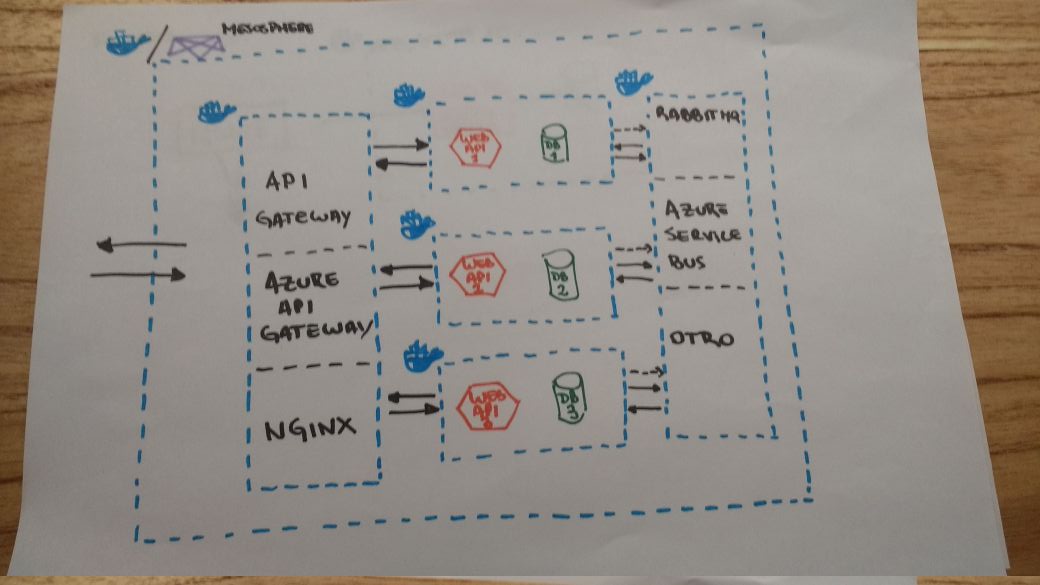 MESOSPHERE
API
GATEWAY
AZURE
API
GATEWAY
NGINX
WEB
API
1
DB
1
WEB
API
2
DB
2
WEB
API
DB
3
RABBITMQ
AZURE
SERVICE
BUS
OTRO